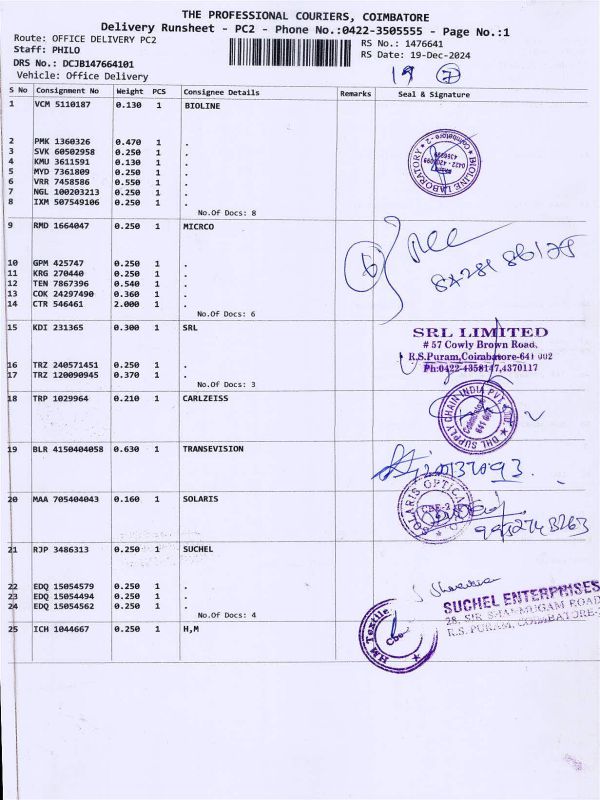 THE PROFESSIONAL COURIERS, COIMBATORE
Delivery Runsheet - PC2 - Phone No.:0422-3505555 - Page No.:1
Route: OFFICE DELIVERY PC2
Staff: PHILO
RS No.: 1476641
RS Date: 19-Dec-2024
DRS No.: DCJB147664101
Vehicle: Office Delivery
19 7
S No Consignment No Weight PCS Consignee Details Remarks Seal & Signature
1 VCM 5110187 0.130 1 BIOLINE
2 PMK 1360326 0.470 1 .
3 SVK 60502958 0.250 1 .
4 KMU 3611591 0.130 1 .
5 MYD 7361809 0.250 1 .
6 VRR 7458586 0.550 1 .
7 NGL 100203213 0.250 1 .
8 IXM 507549106 0.250 1 .
No.Of Docs: 8
BIOLINE LABORATORY
Coimbatore - 2
9 RMD 1664047 0.250 1 MICRCO
6
10 GPM 425747 0.250 1 .
11 KRG 270440 0.250 1 .
12 TEN 7867396 0.540 1 .
13 COK 24297490 0.360 1 .
14 CTR 546461 2.000 1 .
No.Of Docs: 6
15 KDI 231365 0.300 1 SRL
SRL LIMITED
# 57 Cowly Brown Road,
R.S.Puram,Coimbatore-641 002
Ph:0422-4358147,4370117
16 TRZ 240571451 0.250 1 .
17 TRZ 120090945 0.370 1 .
No.Of Docs: 3
18 TRP 1029964 0.210 1 CARLZEISS
DHL SUPPLY CHAIN INDIA PVT. LTD.
Coimbatore
19 BLR 4150404058 0.630 1 TRANSEVISION
20 MAA 705404043 0.160 1 SOLARIS
SOLARIS OPTICAL
CBE-2
21 RJP 3486313 0.250 1 SUCHEL
22 EDQ 15054579 0.250 1 .
23 EDQ 15054494 0.250 1 .
24 EDQ 15054562 0.250 1 .
No.Of Docs: 4
SUCHEL ENTERPRISES
28, SIR SHANMUGAM ROAD
R.S. PURAM, COIMBATORE-
25 ICH 1044667 0.250 1 H,M
HM Textile